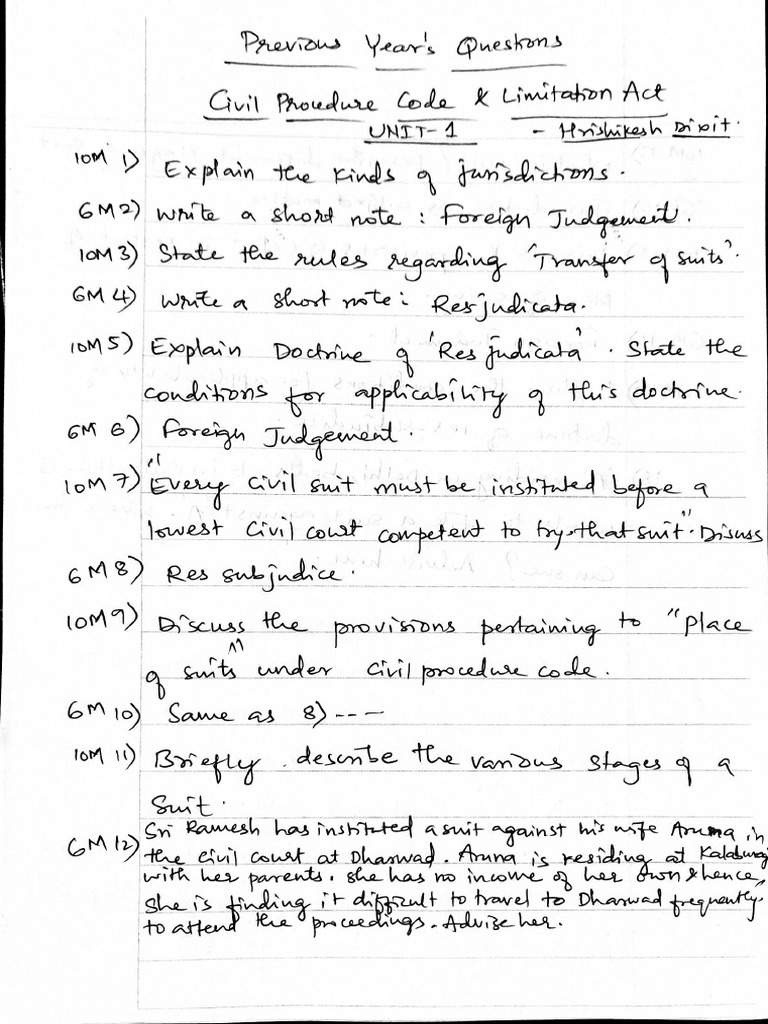 Previous Year's Questions
Civil Procedure Code & Limitation Act
UNIT-1 - Hrishikesh Dixit.
10M 1) Explain the kinds of jurisdictions.
6M 2) Write a short note: Foreign Judgement.
10M 3) State the rules regarding 'Transfer of suits'.
6M 4) Write a short note: Resjudicata.
10M 5) Explain Doctrine of 'Res judicata'. State the
conditions for applicability of this doctrine.
6M 6) Foreign Judgement.
10M 7) "Every civil suit must be instituted before a
lowest civil court competent to try that suit". Discuss
6M 8) Res subjudice.
10M 9) Discuss the provisions pertaining to "Place
of suits" under Civil procedure code.
6M 10) Same as 8) ---
10M 11) Briefly describe the various stages of a
Suit.
6M 12) Sri Ramesh has instituted a suit against his wife Aruna in
the civil court at Dharwad. Aruna is residing at Kalaburagi
with her parents. She has no income of her own & hence,
She is finding it difficult to travel to Dharwad frequently
to attend the proceedings. Advise her.